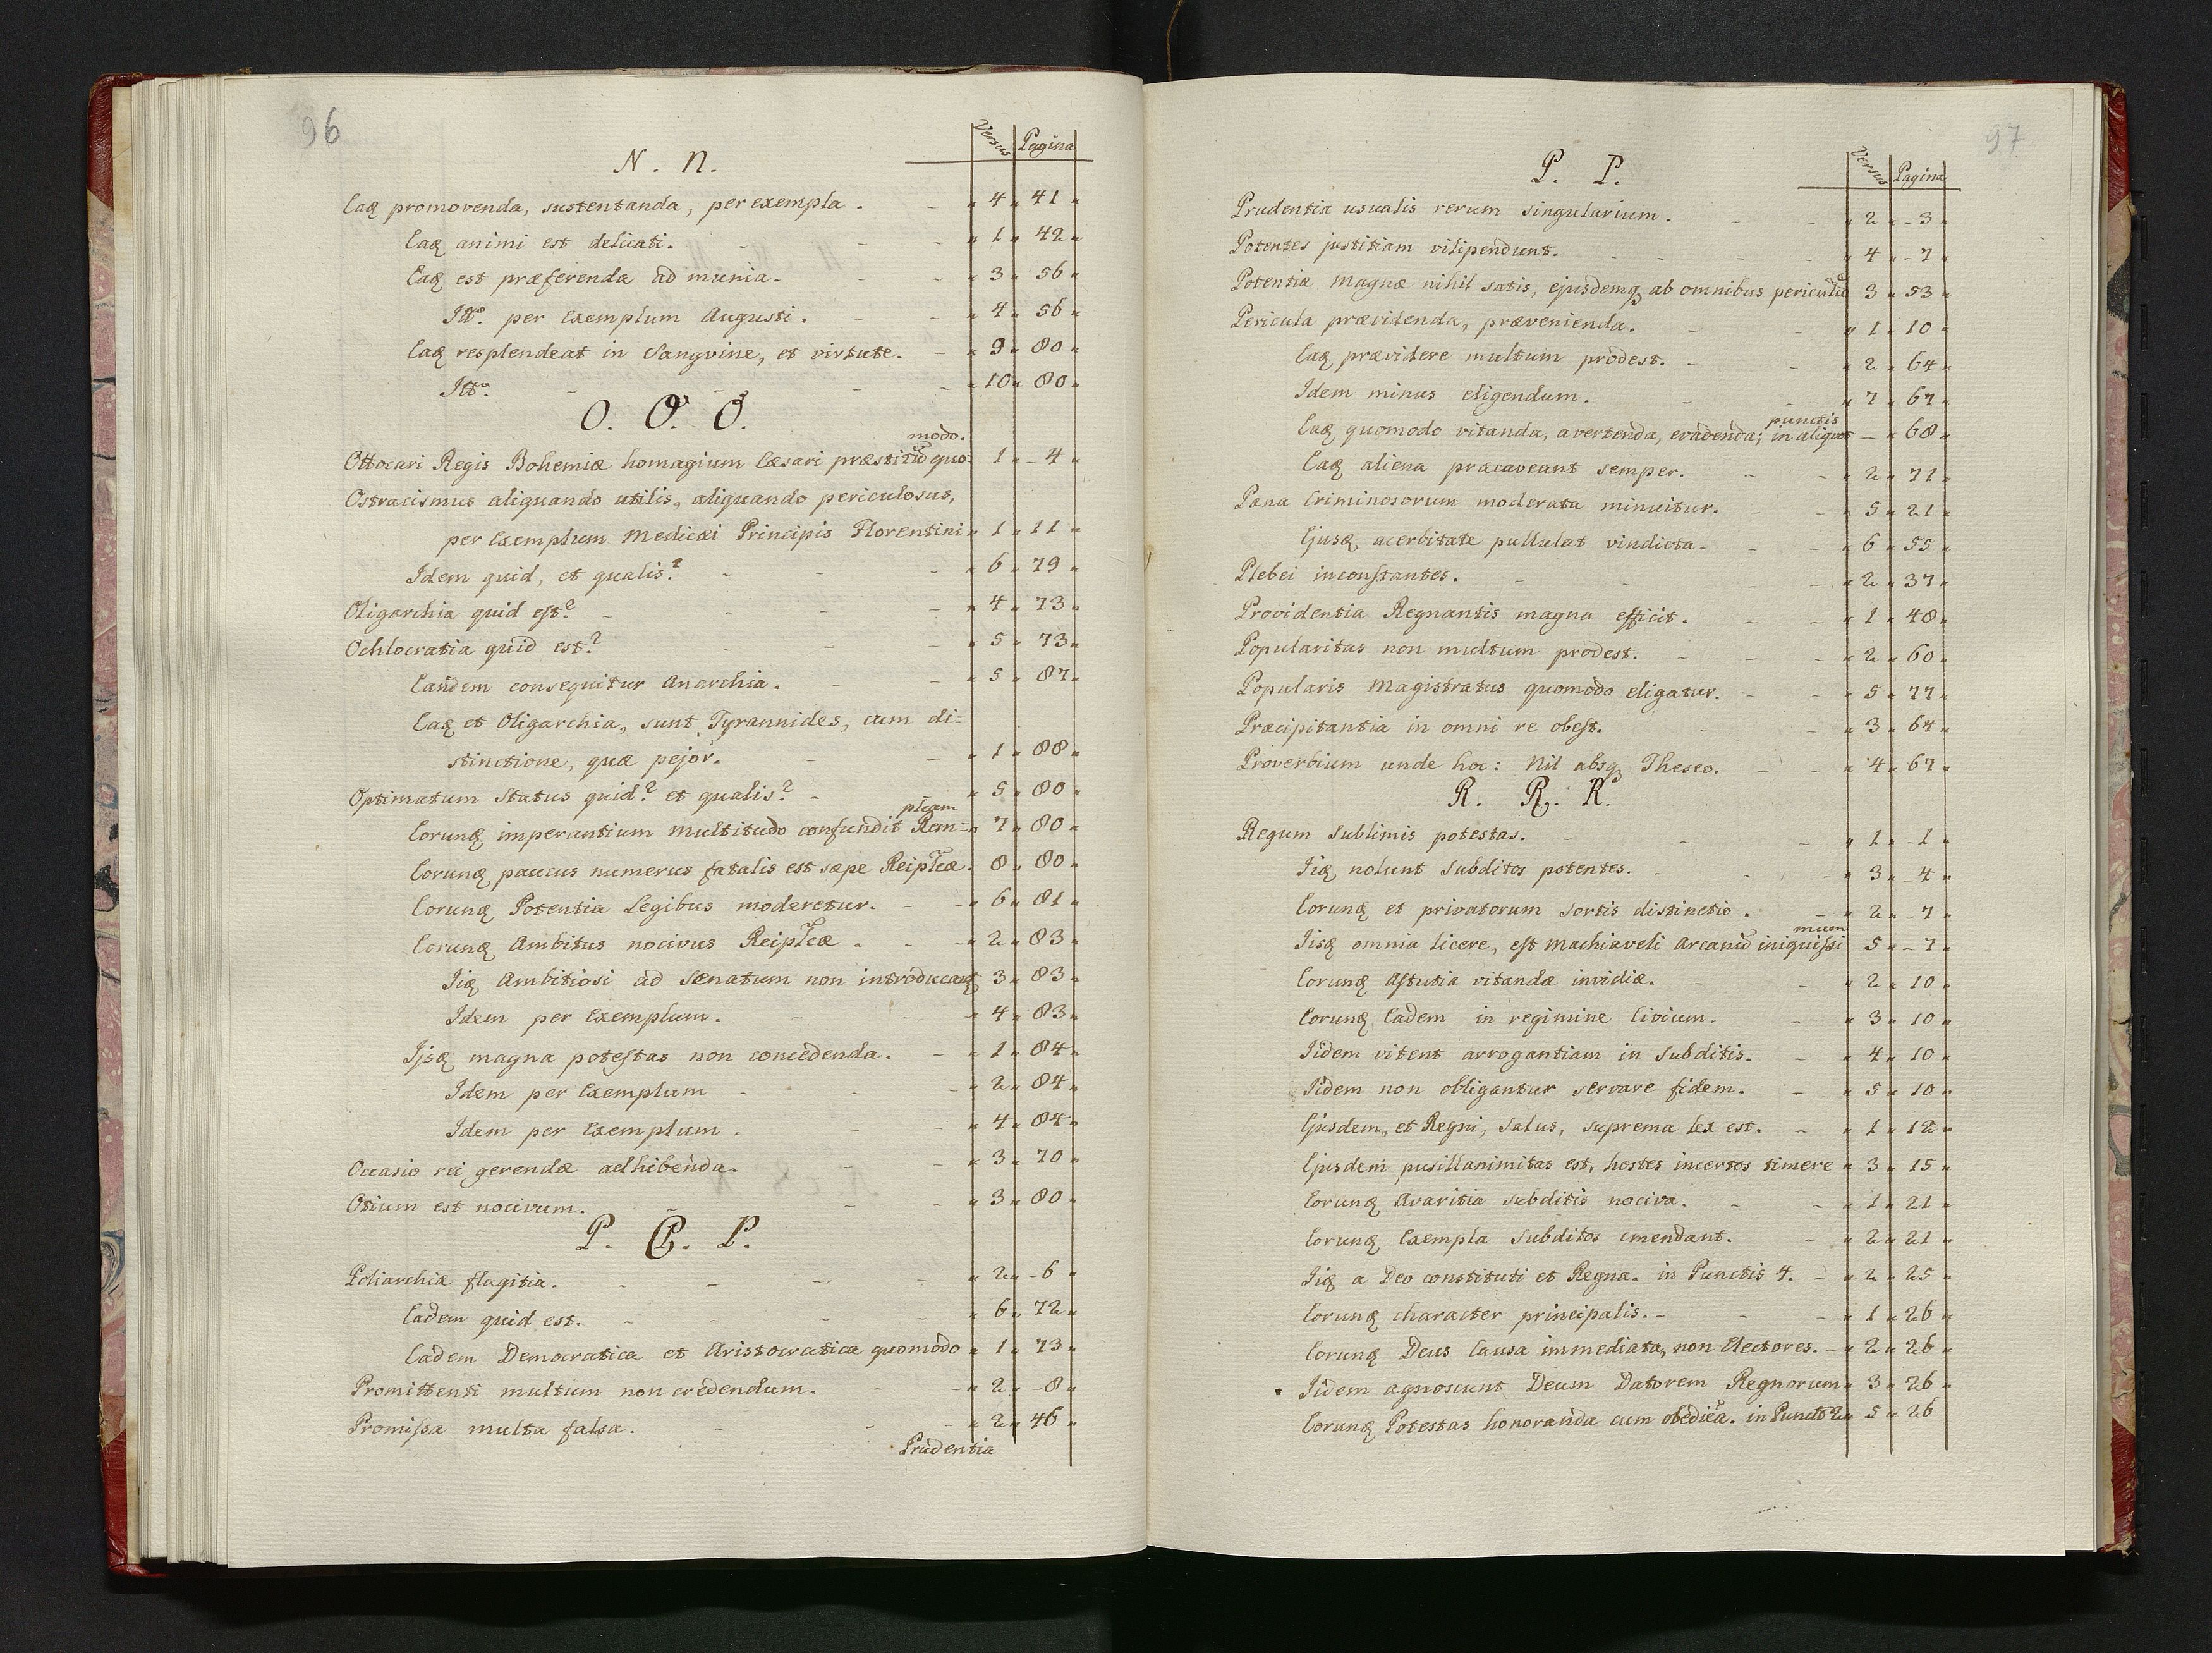 96
Versus Pagina
N. N.
Eaq promovenda, sustentanda, per exempla. " 4 " 41 "
Eaq animi est delicati. " 1 " 42 "
Eaq est præferenda ad munia. " 3 " 56 "
Ittō. per Exemplum Augusti. " 4 " 56 "
Eaq resplendeat in Sangvine, et virtute. " 9 " 80 "
Ittō. " 10 " 80 "
O. O. O.
modo.
Ottocari Regis Bohemiæ homagium Cæsari præstitū quo= 1 " 4 "
Ostracismus aliquando utilis, aliquando periculosus,
per Exemplum Medicæi Principis Florentini " 1 " 11 "
Idem quid, et qualis? " 6 " 79 "
Oligarchia quid est? " 4 " 73 "
Ochlocratia quid est? " 5 " 73 "
Eandem consequitur Anarchia. " 5 " 87 "
Eaq et Oligarchia, sunt Tyrannides, cum di=
stinctione, quæ pejor. " 1 " 88 "
Optimatum Status quid? et qualis? " 5 " 80 "
plcam
Eorunq imperantium multitudo confundit Rem= " 7 " 80 "
Eorunq paucus numerus fatalis est sæpe Reiplcæ. 8 " 80 "
Eorunq Potentia Legibus moderetur. " 6 " 81 "
Eorunq Ambitus nocivus Reiplcæ. " 2 " 83 "
Iiq Ambitiosi ad Senatum non introducanq 3 " 83 "
Idem per Exemplum. " 4 " 83 "
Ijsq magna potestas non concedenda. " 1 " 84 "
Idem per Exemplum " 2 " 84 "
Idem per Exemplum. " 4 " 84 "
Occasio rei gerendæ adhibenda. " 3 " 70 "
Otium est nocivum. " 3 " 80 "
P. P. P.
Poliarchiæ flagitia. " 2 " 6 "
Eadem quid est. " 6 " 72 "
Eadem Democratica et Aristocratica quomodo " 1 " 73 "
Promittenti multum non credendum. " 2 " 8 "
Promissa multa falsa. " 2 " 46 "
Prudentia
97
Versus Pagina
P. P.
Prudentia usualis rerum singularium. " 2 " 3 "
Potentes justitiam vilipendunt. " 4 " 7 "
Potentiæ magnæ nihil satis, ejusdemq ab omnibus periculū 3 " 53 "
Pericula prævidenda, prævenienda. " 1 " 10 "
Eaq prævidere multum prodest. " 2 " 64 "
Idem minus eligendum. " 7 " 67 "
punctis
Eaq quomodo vitanda, avertenda, evadenda; in aliquot — " 68 "
Eaq aliena præcaveant semper. " 2 " 71 "
Pæna Criminosorum moderata minuitur. " 5 " 21 "
Ejusq acerbitate pullulat vindicta. " 6 " 55 "
Plebei inconstantes. " 2 " 37 "
Providentia Regnantis magna efficit. " 1 " 48 "
Popularitas non multum prodest. " 2 " 60 "
Popularis Magistratus quomodo eligatur. " 5 " 77 "
Præcipitantia in omni re obest. " 3 " 64 "
Proverbium unde hoc: Nil absq Theseo. " 4 " 67 "
R. R. R.
Regum Sublimis potestas. " 1 " 1 "
Iiq nolunt Subditos potentes. " 3 " 4 "
Eorunq et privatorum sortis distinctio. " 2 " 7 "
mum
Iisq omnia licere, est Machiaveli Arcanū iniquissi 5 " 7 "
Eorunq Astutia vitandæ invidiæ. " 2 " 10 "
Eorunq Eadem in regimine Civium. " 3 " 10 "
Iidem vitent arrogantiam in Subditis. " 4 " 10 "
Iidem non obligantur servare fidem. " 5 " 10 "
Ejusdem, et Regni, Salus, suprema lex est. " 1 " 12 "
Ejusdem pusillanimitas est, hostes incertos timere " 3 " 15 "
Eorunq Avaritia Subditis nociva. " 1 " 21 "
Eorunq Exempla Subditos emendant. " 2 " 21 "
Iiq a Deo constituti et Regna. in Punctis 4. " 2 " 25 "
Eorunq character principalis. " 1 " 26 "
Eorunq Deus Causa immediata, non Electores. " 2 " 26 "
Iidem agnoscunt Deum Datorem Regnorum " 3 " 26 "
Eorunq Potestas honoranda cum obedica. in Punct 2 " 5 " 26